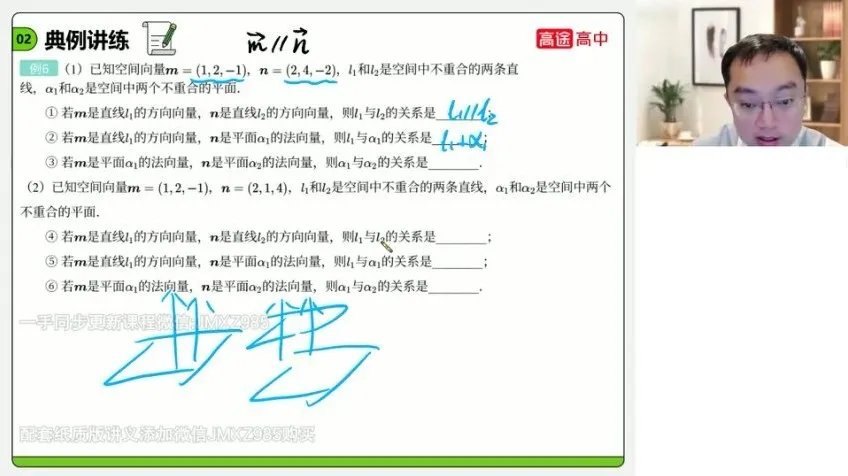 02 典例讲练
m⃗ // n⃗
高途高中
例6 （1）已知空间向量m=(1,2,−1)，n=(2,4,−2)，l₁和l₂是空间中不重合的两条直
线，α₁和α₂是空间中两个不重合的平面.
① 若m是直线l₁的方向向量，n是直线l₂的方向向量，则l₁与l₂的关系是 l₁//l₂
② 若m是直线l₁的方向向量，n是平面α₁的法向量，则l₁与α₁的关系是 l₁⊥α₁；
③ 若m是平面α₁的法向量，n是平面α₂的法向量，则α₁与α₂的关系是________.
（2）已知空间向量m=(1,2,−1)，n=(2,1,4)，l₁和l₂是空间中不重合的两条直线，α₁和α₂是空间中两个
不重合的平面.
④ 若m是直线l₁的方向向量，n是直线l₂的方向向量，则l₁与l₂的关系是________；
⑤ 若m是直线l₁的方向向量，n是平面α₁的法向量，则l₁与α₁的关系是________；
⑥ 若m是平面α₁的法向量，n是平面α₂的法向量，则α₁与α₂的关系是________.
一手同步更新课程微信JMXZ985
配套纸质版讲义添加微信JMXZ985购买